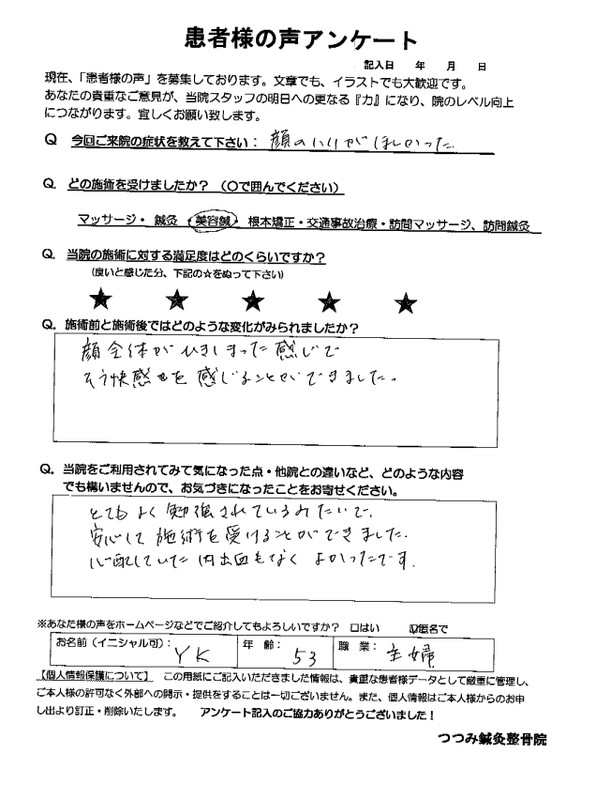 患者様の声アンケート
記入日　年　月　日
現在、「患者様の声」を募集しております。文章でも、イラストでも大歓迎です。
あなたの貴重なご意見が、当院スタッフの明日への更なる『力』になり、院のレベル向上
につながります。宜しくお願い致します。
Q 今回ご来院の症状を教えて下さい： 顔のハリがほしかった
Q. どの施術を受けましたか？（○で囲んでください）
マッサージ・ 鍼灸 ・美容鍼・ 根本矯正・交通事故治療・訪問マッサージ、訪問鍼灸
Q. 当院の施術に対する満足度はどのくらいですか？
（良いと感じた分、下記の☆をぬって下さい）
★ ★ ★ ★ ★
Q. 施術前と施術後ではどのような変化がみられましたか？
顔全体がひきしまった感じで
そう快感をを感じることができました。
Q. 当院をご利用されてみて気になった点・他院との違いなど、どのような内容
でも構いませんので、お気づきになったことをお寄せください。
とてもよく勉強されているみたいで、
安心して施術を受けることができました。
心配していた内出血もなくよかったです。
※あなた様の声をホームページなどでご紹介してもよろしいですか？ □はい ☑匿名で
お名前（イニシャル可）： YK 年 齢： 53 職 業： 主婦
【個人情報保護について】 この用紙にご記入いただきました情報は、貴重な患者様データとして厳重に管理し、
ご本人様の許可なく外部への開示・提供をすることは一切ございません。また、個人情報はご本人様からのお申
し出より訂正・削除いたします。 アンケート記入のご協力ありがとうございました！
つつみ鍼灸整骨院